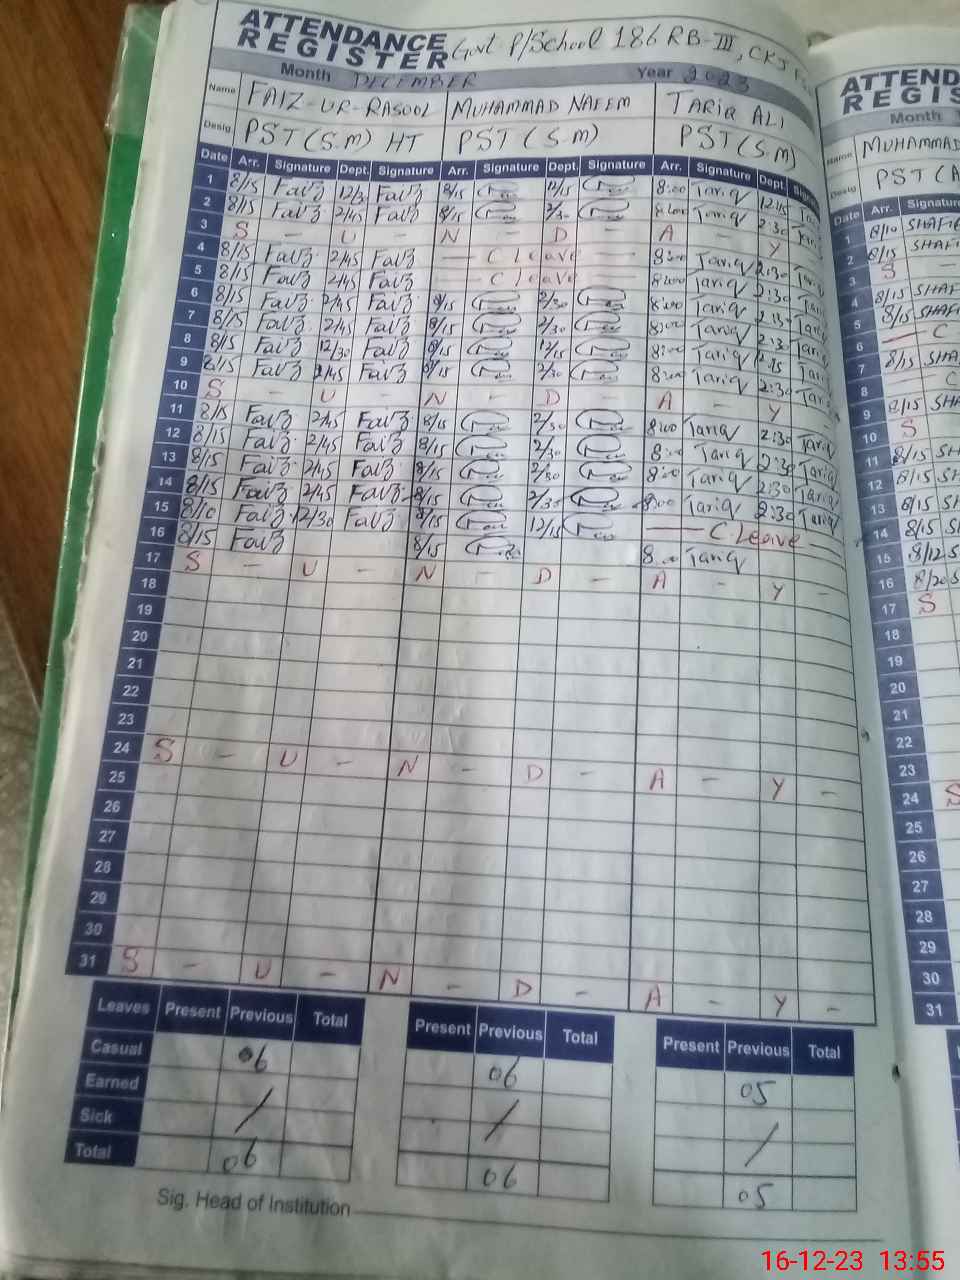 ATTENDANCE
REGISTER Govt P/School 186 RB-III, CKJ
Month DECEMBER Year 2023
Name FAIZ-UR-RASOOL MUHAMMAD NAEEM TARIQ ALI
Desig. PST (S.M) HT PST (S.M) PST (S.M)
Date Arr. Signature Dept. Signature Arr. Signature Dept. Signature Arr. Signature Dept.
1 8/15 Faiz 12/30 Faiz 8/15 12/15 8:00 Tariq 12:15
2 8/15 Faiz 2/45 Faiz 8/15 2/30 8:00 Tariq 2:30
3 S - U - N - D - A - Y -
4 8/15 Faiz 2/45 Faiz — C Leave — 8:00 Tariq 2:30 Tariq
5 8/15 Faiz 2/45 Faiz — C Leave — 8:00 Tariq 2:30 Tariq
6 8/15 Faiz 2/45 Faiz 8/15 2/30 8:00 Tariq 2:30 Tariq
7 8/15 Faiz 2/45 Faiz 8/15 2/30 8:00 Tariq 2:30 Tariq
8 8/15 Faiz 12/30 Faiz 8/15 12/15 8:00 Tariq Tariq
9 8/15 Faiz 2/45 Faiz 8/15 2/30 8:00 Tariq 2:30 Tariq
10 S - U - N - D - A - Y -
11 8/15 Faiz 2/45 Faiz 8/15 2/30 8:00 Tariq 2:30 Tariq
12 8/15 Faiz 2/45 Faiz 8/15 2/30 8:00 Tariq 2:30 Tariq
13 8/15 Faiz 2/45 Faiz 8/15 2/30 8:00 Tariq 2:30 Tariq
14 8/15 Faiz 2/45 Faiz 8/15 2/30 8:00 Tariq 2:30 Tariq
15 8/10 Faiz 12/30 Faiz 8/15 12/15 — C.Leave —
16 8/15 Faiz 8/15 8:00 Tariq
17 S - U - N - D - A - Y -
18
19
20
21
22
23
24 S - U - N - D - A - Y -
25
26
27
28
29
30
31 S - U - N - D - A - Y -
Leaves Present Previous Total Present Previous Total Present Previous Total
Casual 06 06 05
Earned / / /
Sick
Total 06 06 05
Sig. Head of Institution
ATTEND
REGIS
Month
Name MUHAMMAD
Desig PST (A
Date Arr. Signature
1 8/10 SHAFI
2 8/15 SHAF
3 S -
4 8/15 SHAF
5 8/15 SHAF
6 — C
7 8/15 SHA
8 — C
9 8/15 SHA
10 S
11 8/15 SH
12 8/15 SH
13 8/15 SH
14 8/15 SH
15 8/12 S
16 8/20 S
17 S
18
19
20
21
22
23
24 S
25
26
27
28
29
30
31
16-12-23 13:55